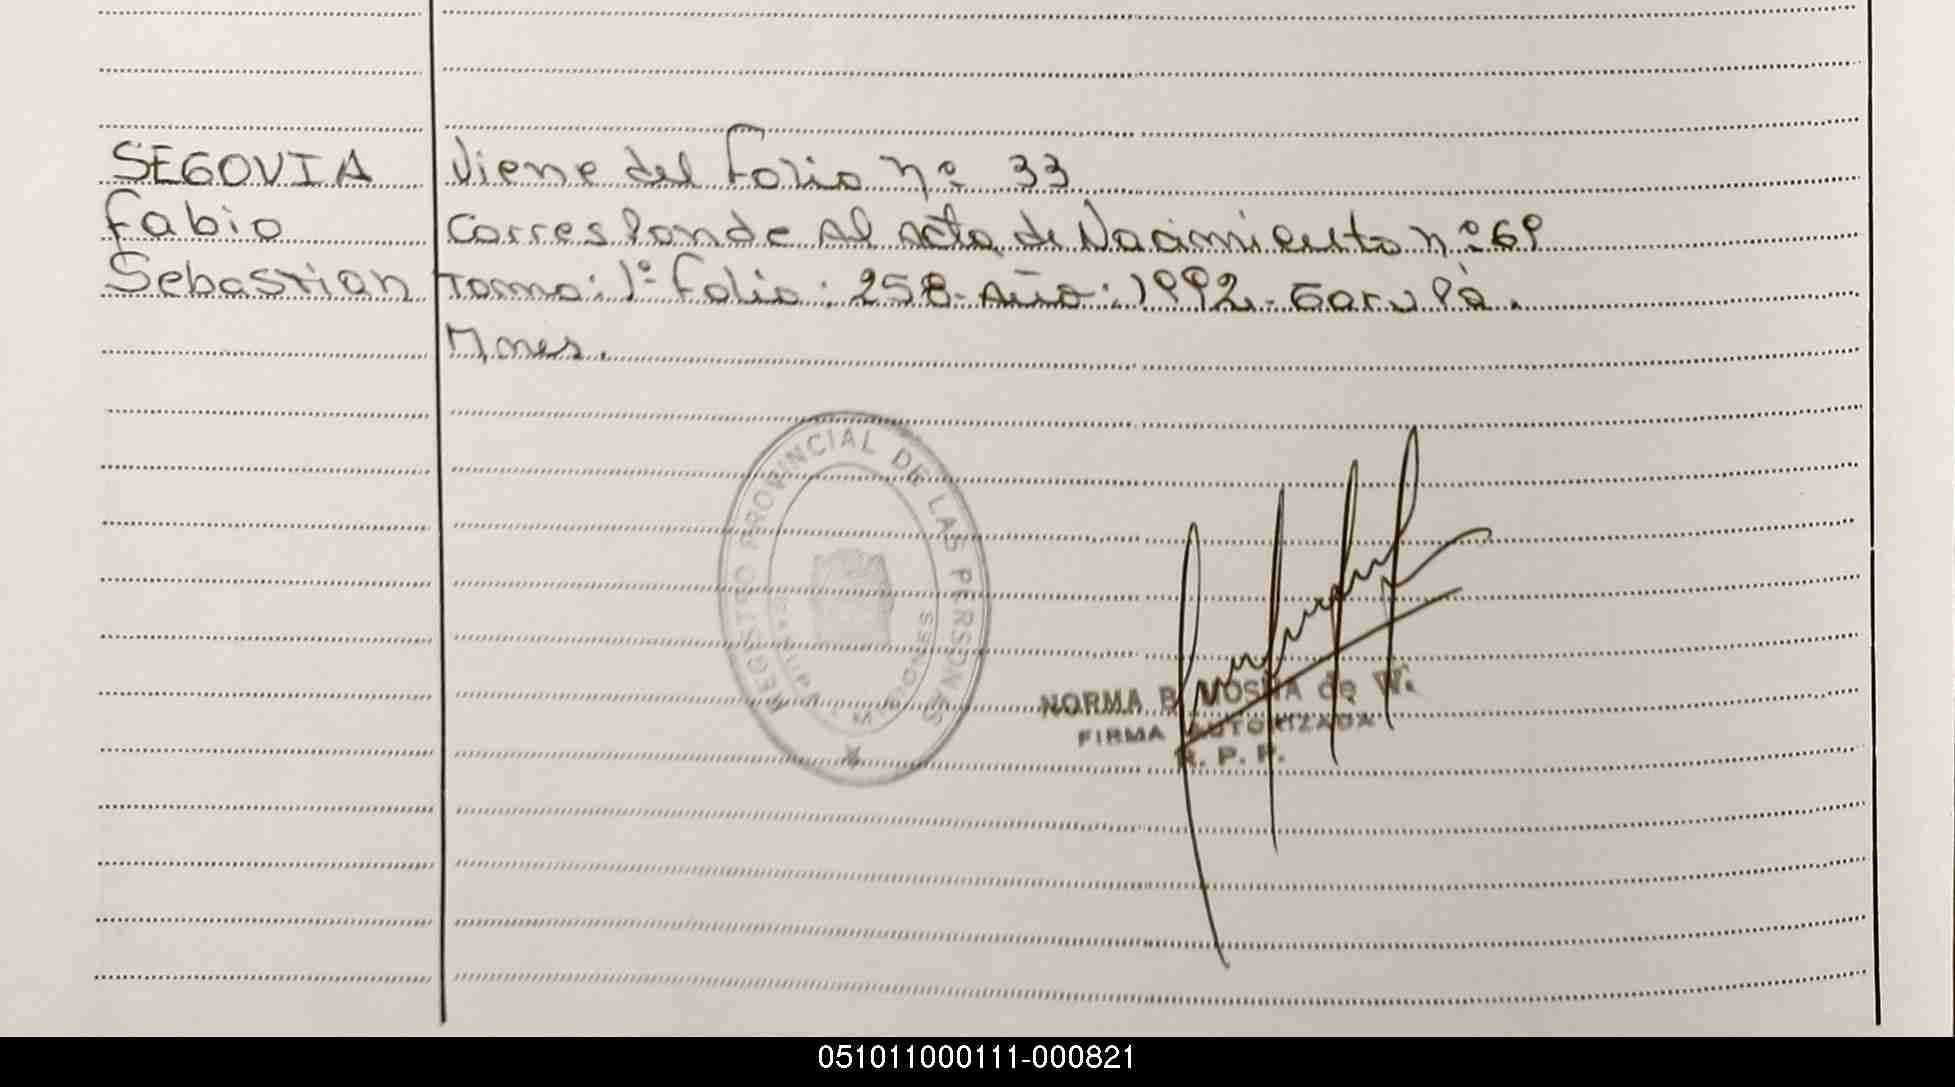 SEGOVIA
Fabio
Sebastian
Viene del Folio nº 33
Corresponde Al Acta de Nacimiento nº 69
Tomo: 1º Folio: 258. Año: 1992. Garupá.
Mnes.
REGISTRO PROVINCIAL DE LAS PERSONAS
MISIONES
NORMA B. de W.
FIRMA AUTORIZADA
R. P. P.
051011000111-000821